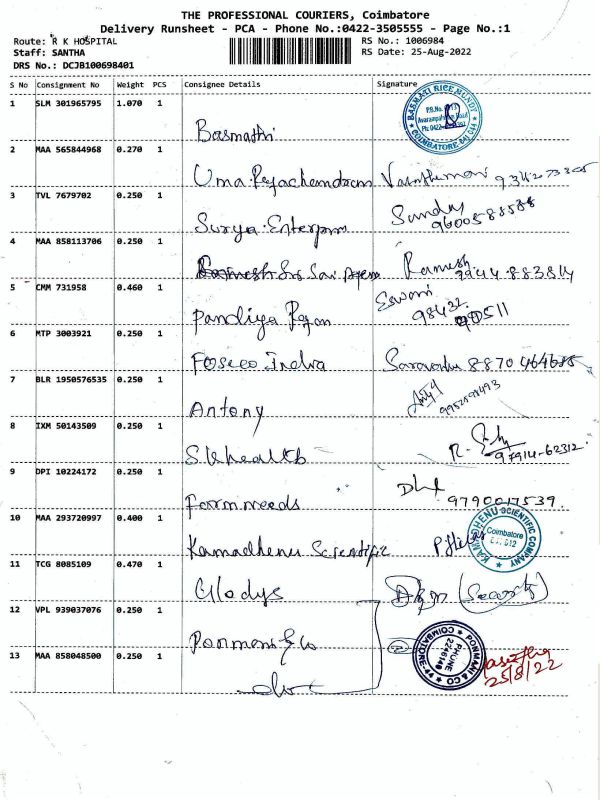 THE PROFESSIONAL COURIERS, Coimbatore
Delivery Runsheet - PCA - Phone No.:0422-3505555 - Page No.:1
Route: R K HOSPITAL RS No.: 1006984
Staff: SANTHA RS Date: 25-Aug-2022
DRS No.: DCJB100698401
S No Consignment No Weight PCS Consignee Details Signature
1 SLM 301965795 1.070 1 Basmathi
BASMATI RICE MUNDY COIMBATORE
2 MAA 565844968 0.270 1 Uma
3 TVL 7679702 0.250 1 Surya Enterprise Sundar
9600588588
4 MAA 858113706 0.250 1 Sri Sai Ramesh
99444 883814
5 CMM 731958 0.460 1 Pandiya Rajan Eswari
98432
6 MTP 3003921 0.250 1 Foseco India 8870 464685
7 BLR 1950576535 0.250 1 Antony
8 IXM 50143509 0.250 1 SK health R.
97914-62312.
9 DPI 10224172 0.250 1 Farm needs
9790017539.
10 MAA 293720997 0.400 1 Kamadhenu Scientific
KAMADHENU SCIENTIFIC COMPANY
Coimbatore
11 TCG 8085109 0.470 1 Gladys (Security)
12 VPL 939037076 0.250 1 Ponmani & Co
PONMANI & CO COIMBATORE-44
PHONE
2246140
13 MAA 858048500 0.250 1
25/8/22